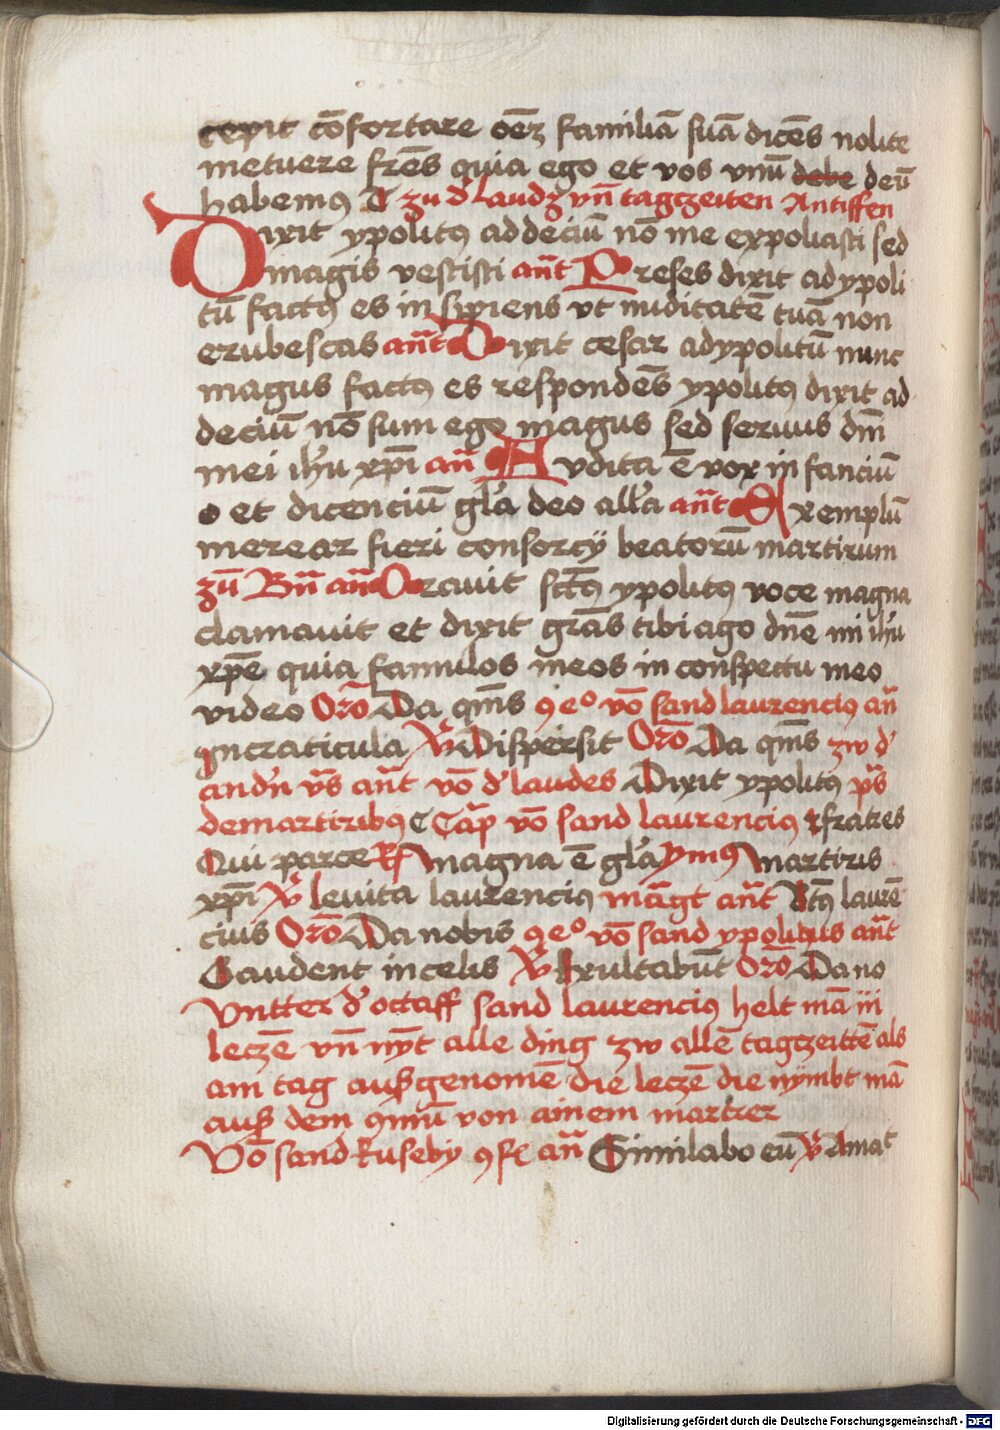 cepit cōfortare oēꝫ familiā suā dicēs nolite
metuere frēs quia ego et vos vnū debe deū
habemꝯ zu d' Laudꝫ vn̄ tagczeiten Antiffen
Dixit ypolitꝯ ad deciū nō me expoliasti sed
magis vestisti an̄t Preses dixit ad ypoli
tū factꝯ es insipiens vt nuditatē tuā non
erubescas an̄t Dixit cesar ad ypolitū nunc
magus factꝯ es respondēs ypolitꝯ dixit ad
deciū nō sum ego magus sed seruus dn̄i
mei ih'u xp̄i an̄ Audita ē vox infanciū
o et dicenciū gl'a deo all'a an̄t Exemplū
merear fieri consorcÿ beatorū martirum
zū Bn̄ an̄ Orauit sct̄ꝯ ypolitꝯ voce magna
clamauit et dixit grās tibi ago dn̄e mi ih'u
xp̄e quia famulos meos in conspectu meo
video Orō Da qm̄s ꝯeº vō sand laurenciꝯ an̄
In craticula V' Dispersit Orō Da qm̄s zw d'
andn̄ vs̄ an̄t vō d' laudes Dixit ypolitꝯ ps̄
de martiribꝯ Cap̄ vō sand laurenciꝯ fratres
Qui parce R Magna ē gl'a Ymꝯ Martiris
xp̄i V' leuita laurenciꝯ māgt an̄t Btꝯ̄ laurē
cius Orō Da nobis ꝯeº vō sand ypolitus an̄t
Gaudent in celis V' Exultabūt Orō Da no
Vntter d' octaff sand laurenciꝯ helt mā iii
leczē vn̄ nyt̄ alle ding zw allē tagczeittē als
am tag ausgenomē die leczē die nÿmbt mā
aus dem ꝯmū von ainem martrer
Vō sand Euseby ꝯf an̄ Similabo eū V' Amat
Digitalisierung gefördert durch die Deutsche Forschungsgemeinschaft - DFG